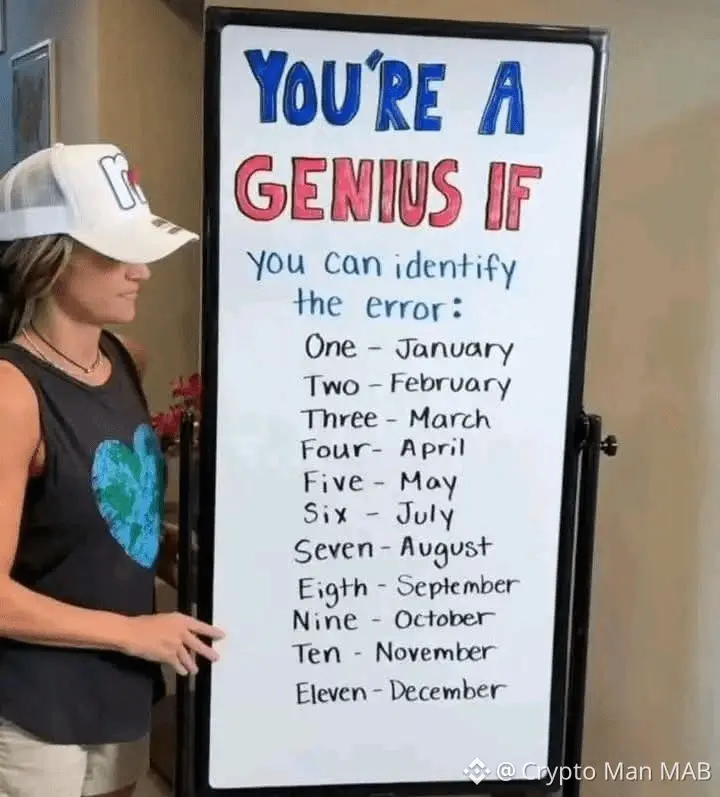 YOU'RE A
GENIUS IF
you can identify
the error:
One - January
Two - February
Three - March
Four - April
Five - May
Six - July
Seven - August
Eigth - September
Nine - October
Ten - November
Eleven - December
@ Crypto Man MAB